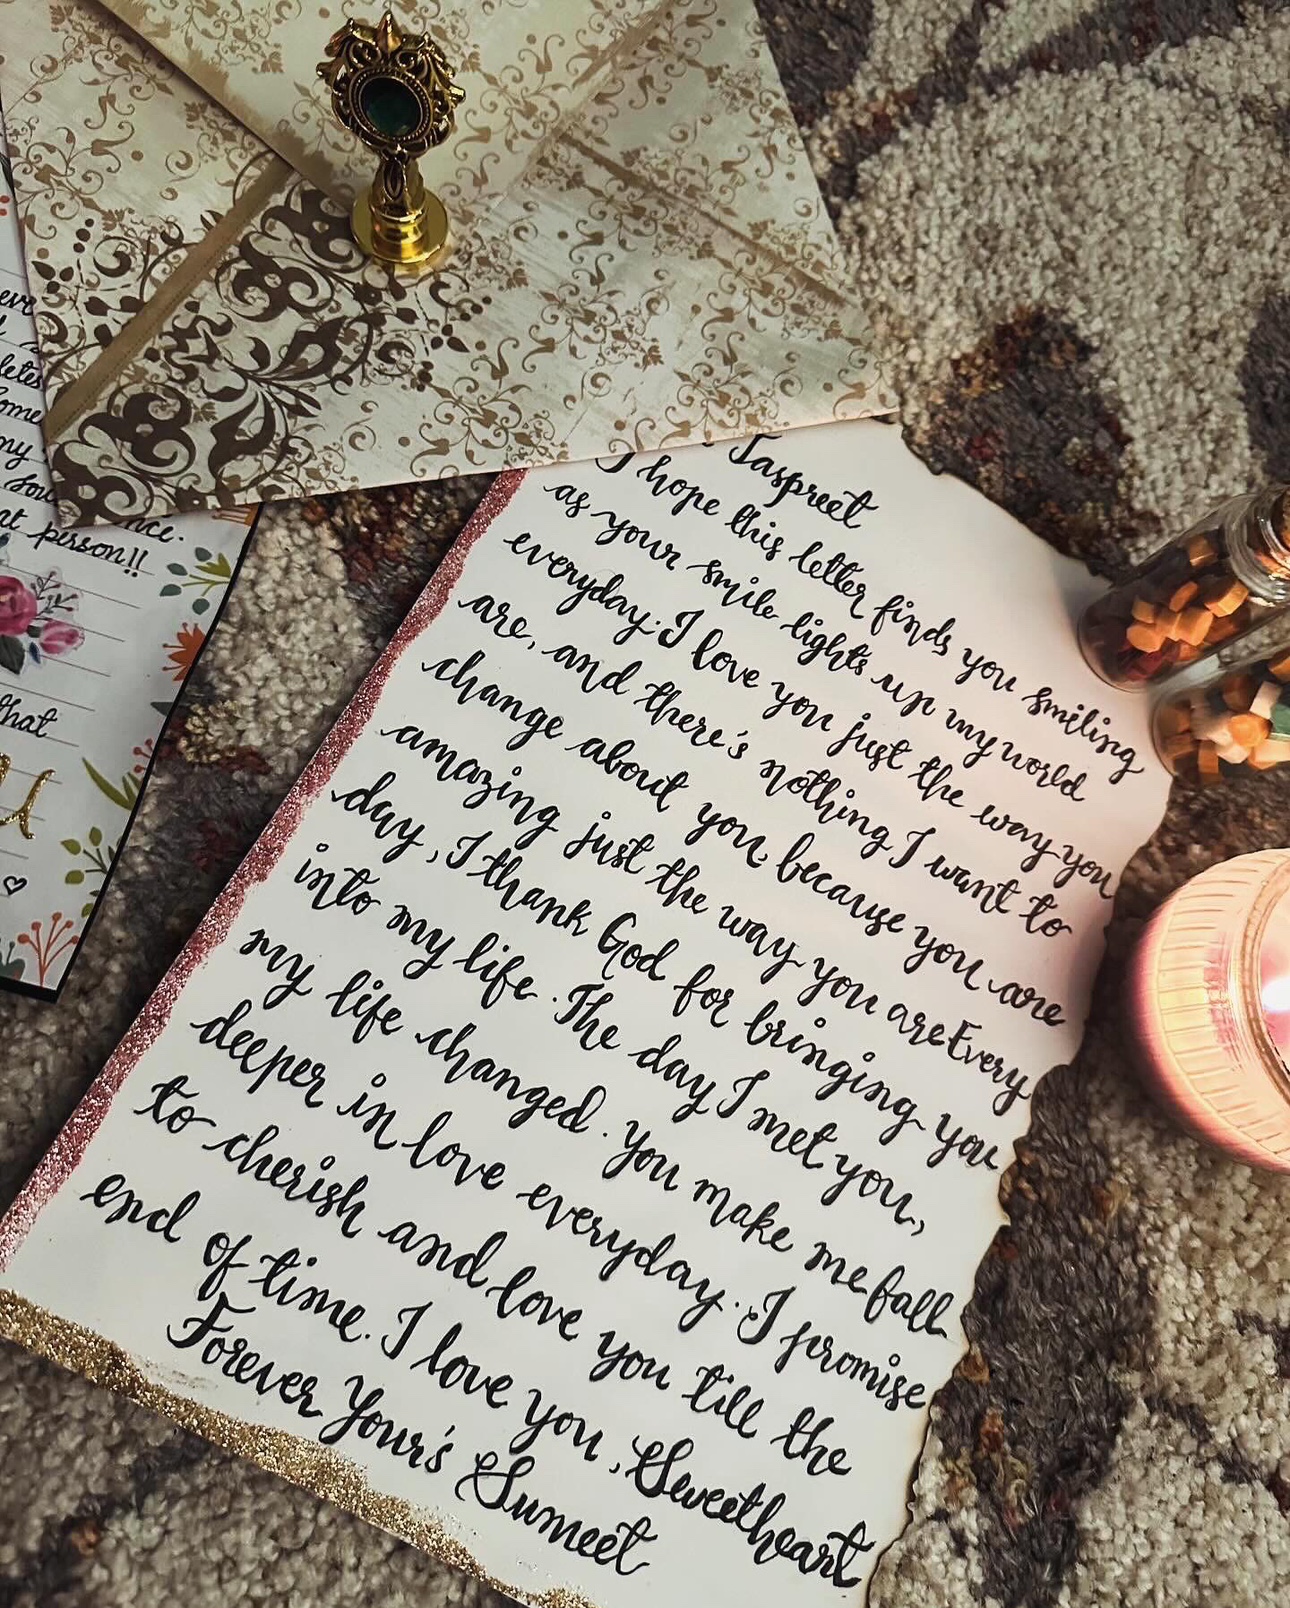 Jaspreet
I hope this letter finds you smiling
as your smile lights up my world
everyday. I love you just the way you
are, and there's nothing I want to
change about you because you are
amazing just the way you are Every
day, I thank God for bringing you
into my life. The day I met you,
my life changed. You make me fall
deeper in love everyday. I promise
to cherish and love you till the
end of time. I love you, Sweetheart
Forever Your's Sumeet
my
person!!
that